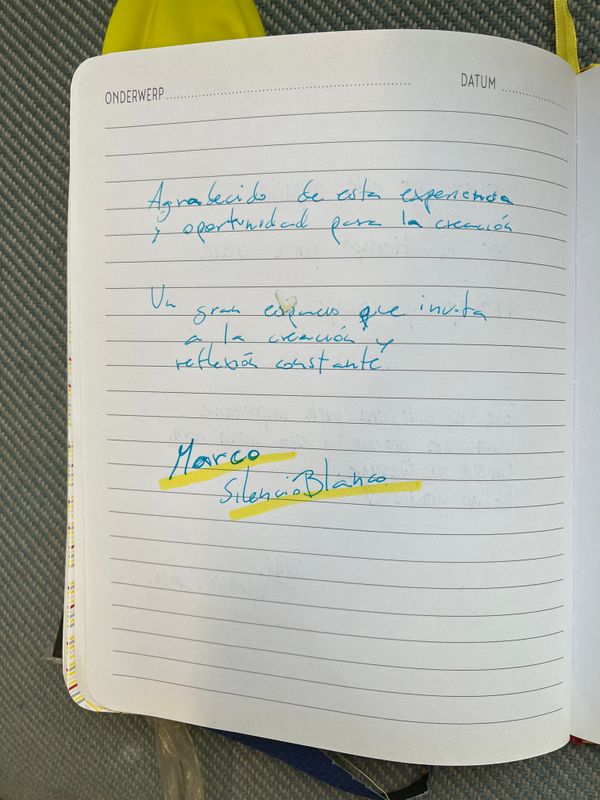 ONDERWERP DATUM
Agradecido de esta experiencia
y oportunidad para la creación
Un gran espacio que invita
a la creación y
reflexión constante
Marco
SilencioBlanco